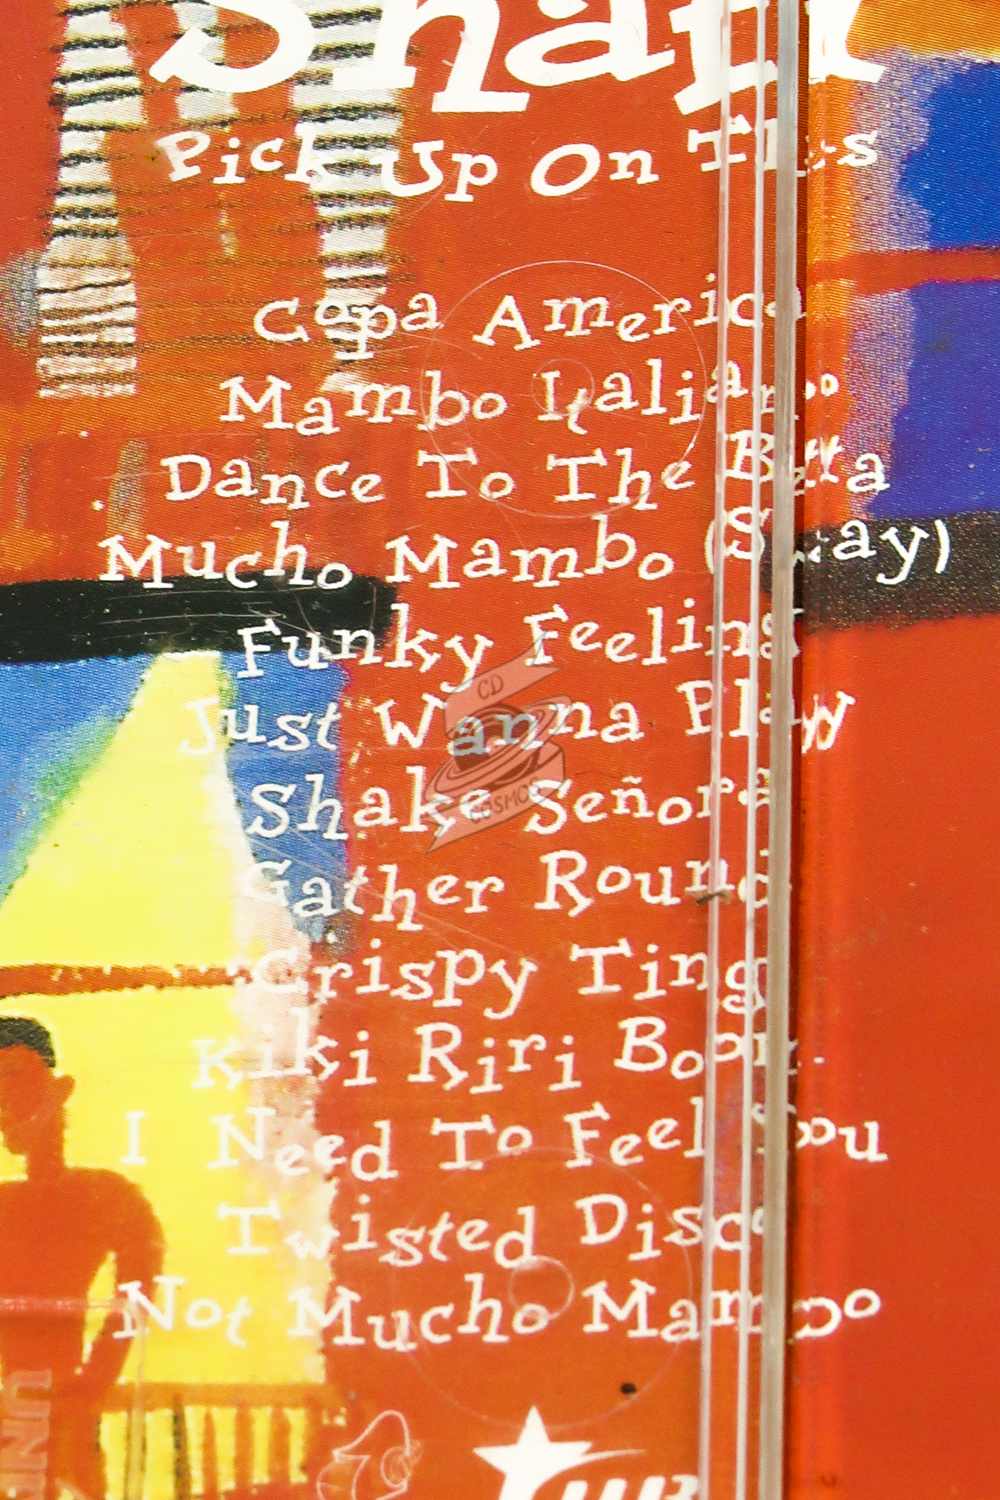 Shaft
Pick Up On This
Copa America
Mambo Italiano
Dance To The Beta
Mucho Mambo (Sway)
Funky Feeling
Just Wanna Play
Shake Señora
Gather Round
Crispy Ting
Kiki Riri Boom
I Need To Feel You
Twisted Disco
Not Mucho Mambo
CD
COSMOS